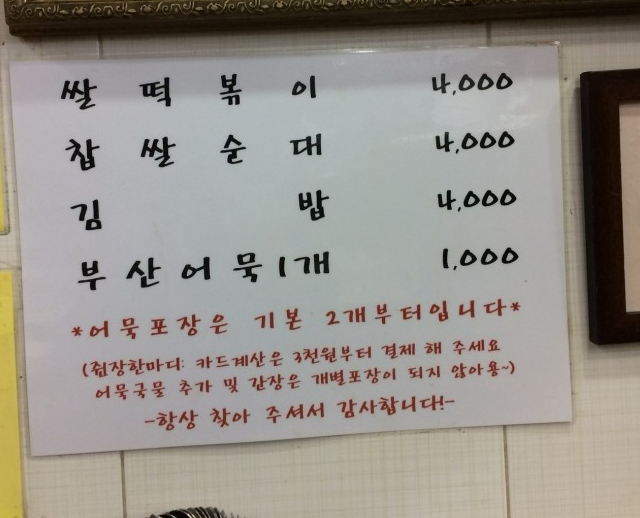 쌀떡볶이 4,000
찹쌀순대 4,000
김 밥 4,000
부산어묵1개 1,000
*어묵포장은 기본 2개부터입니다*
(쥔장한마디: 카드계산은 3천원부터 결제 해 주세요
어묵국물 추가 및 간장은 개별포장이 되지 않아용~)
-항상 찾아 주셔서 감사합니다!-